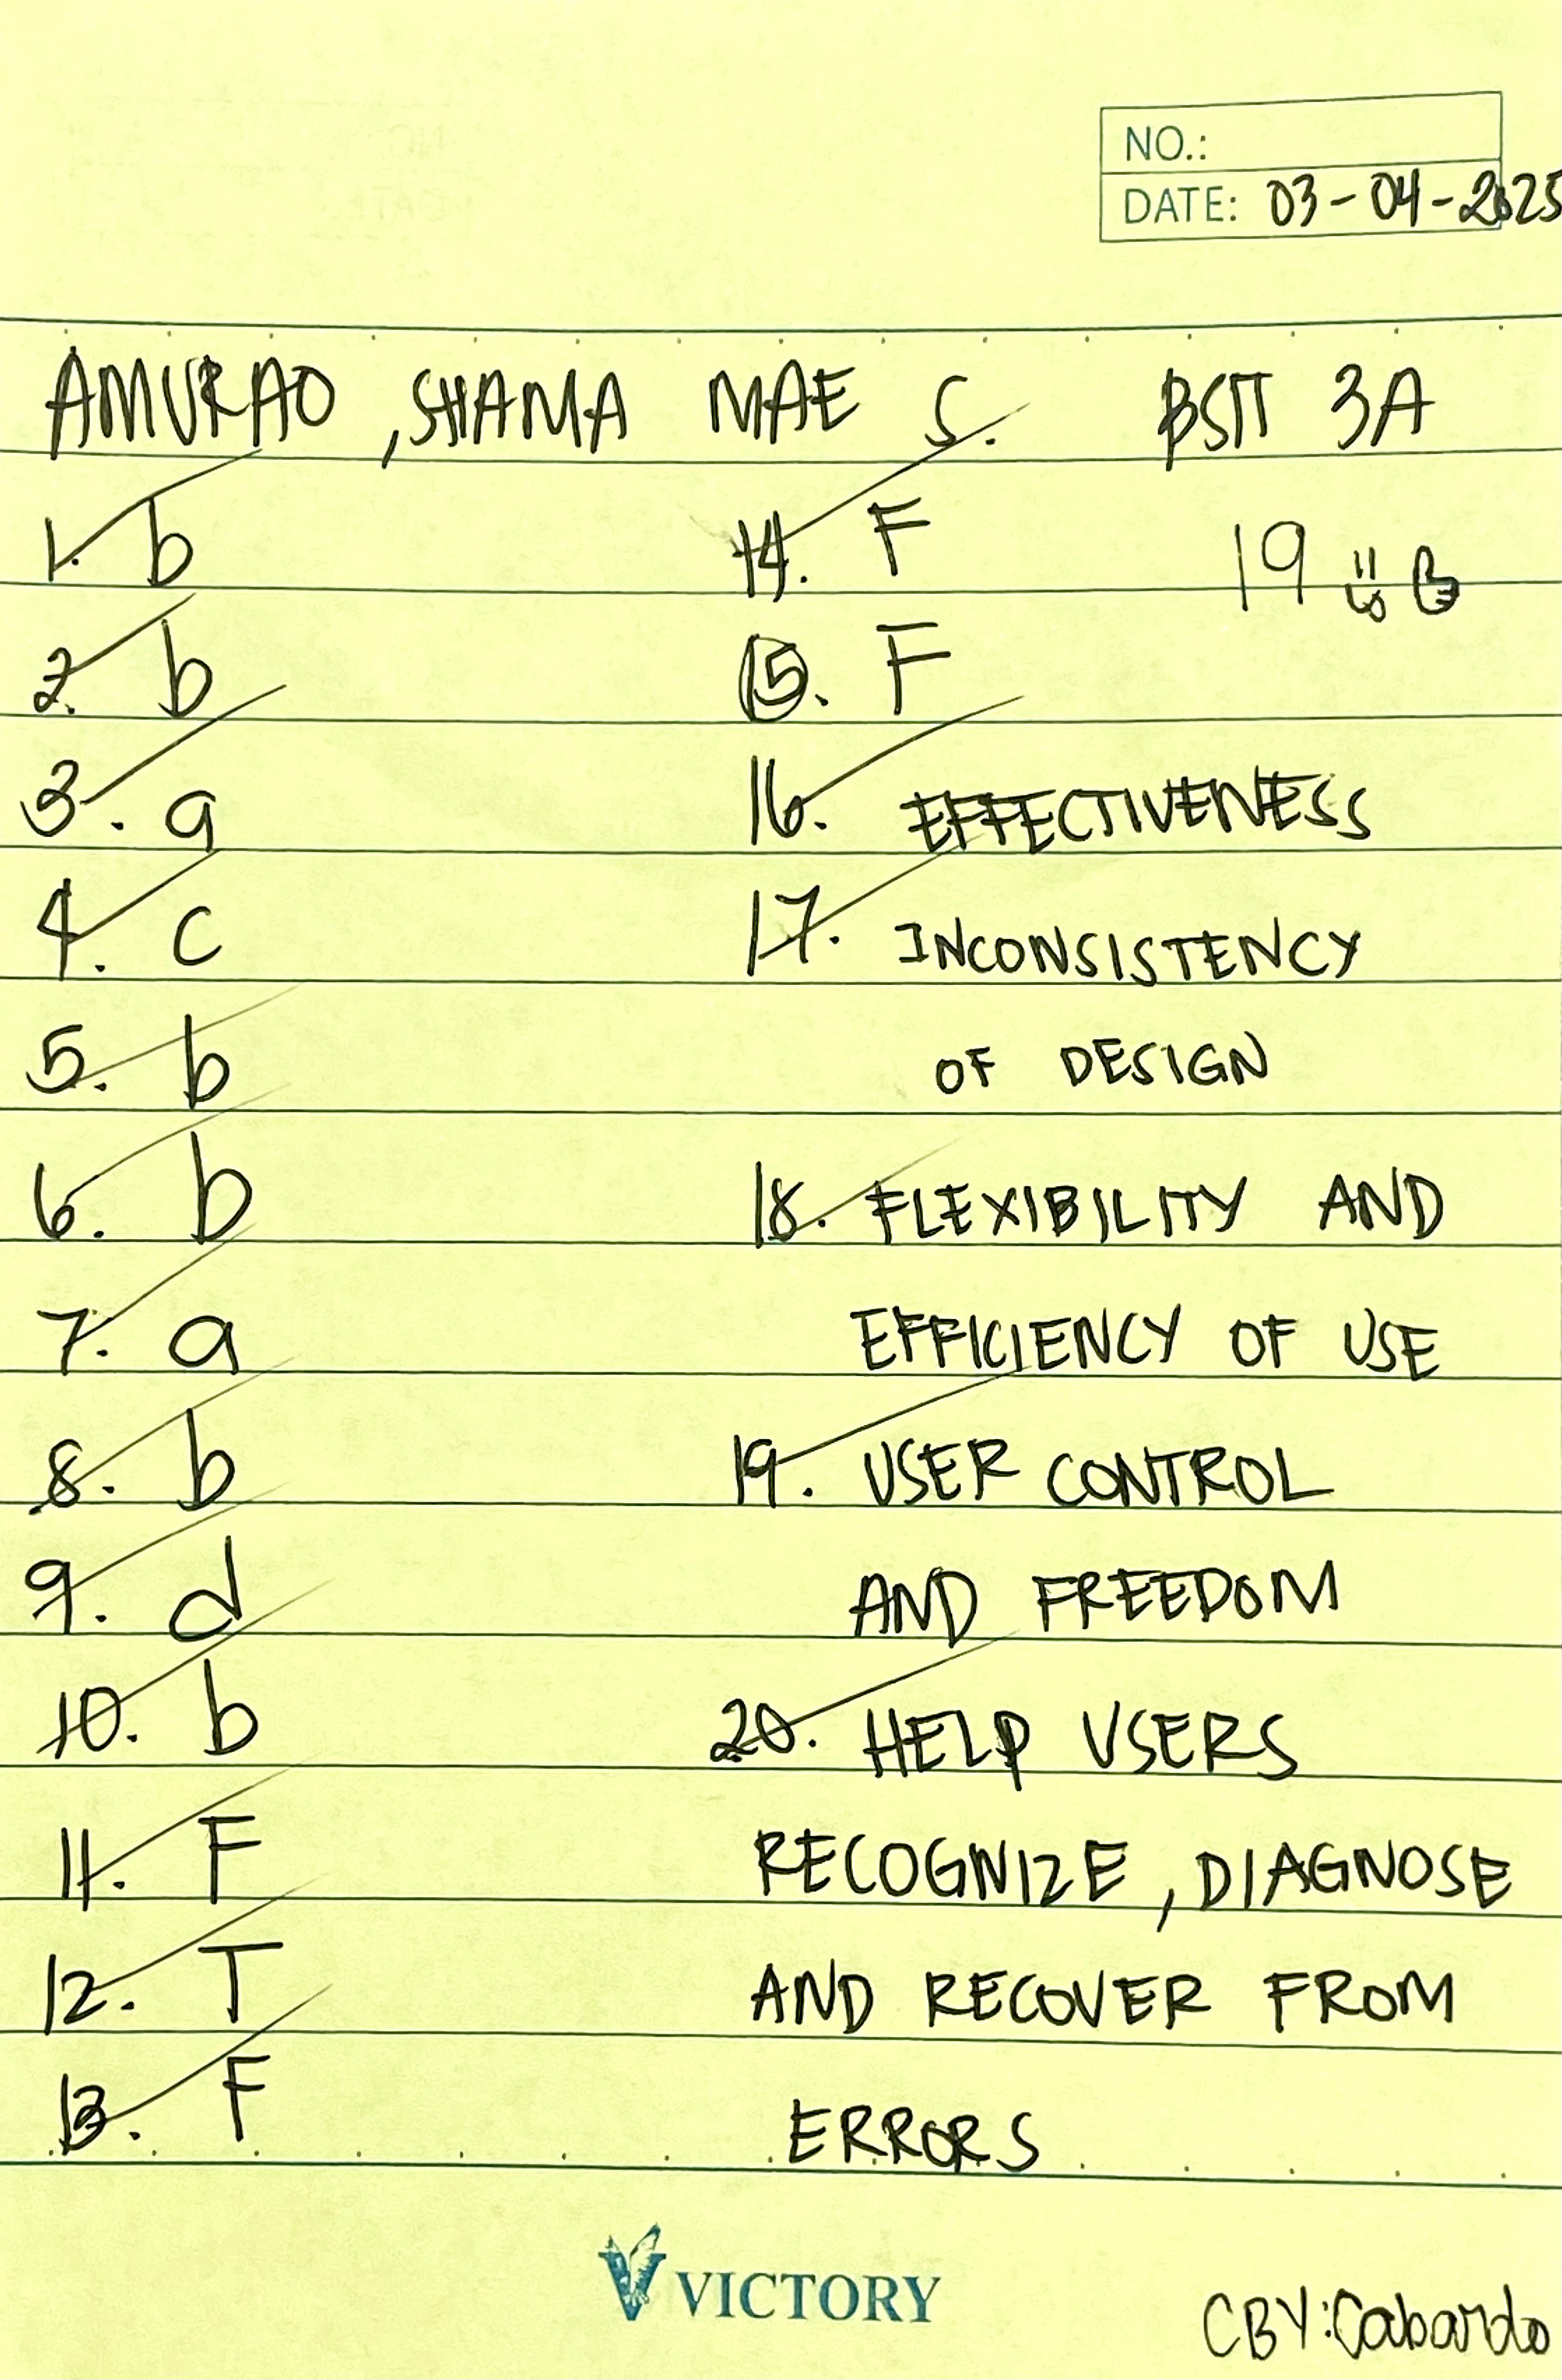 NO.:
DATE: 03-04-2025
AMURAO, SHAMA MAE S. BSIT 3A
19
1. b
2. b
3. a
4. c
5. b
6. b
7. a
8. b
9. d
10. b
11. F
12. T
13. F
14. F
15. F
16. EFFECTIVENESS
17. INCONSISTENCY
OF DESIGN
18. FLEXIBILITY AND
EFFICIENCY OF USE
19. USER CONTROL
AND FREEDOM
20. HELP USERS
RECOGNIZE, DIAGNOSE
AND RECOVER FROM
ERRORS
VICTORY
CBY: Cabardo